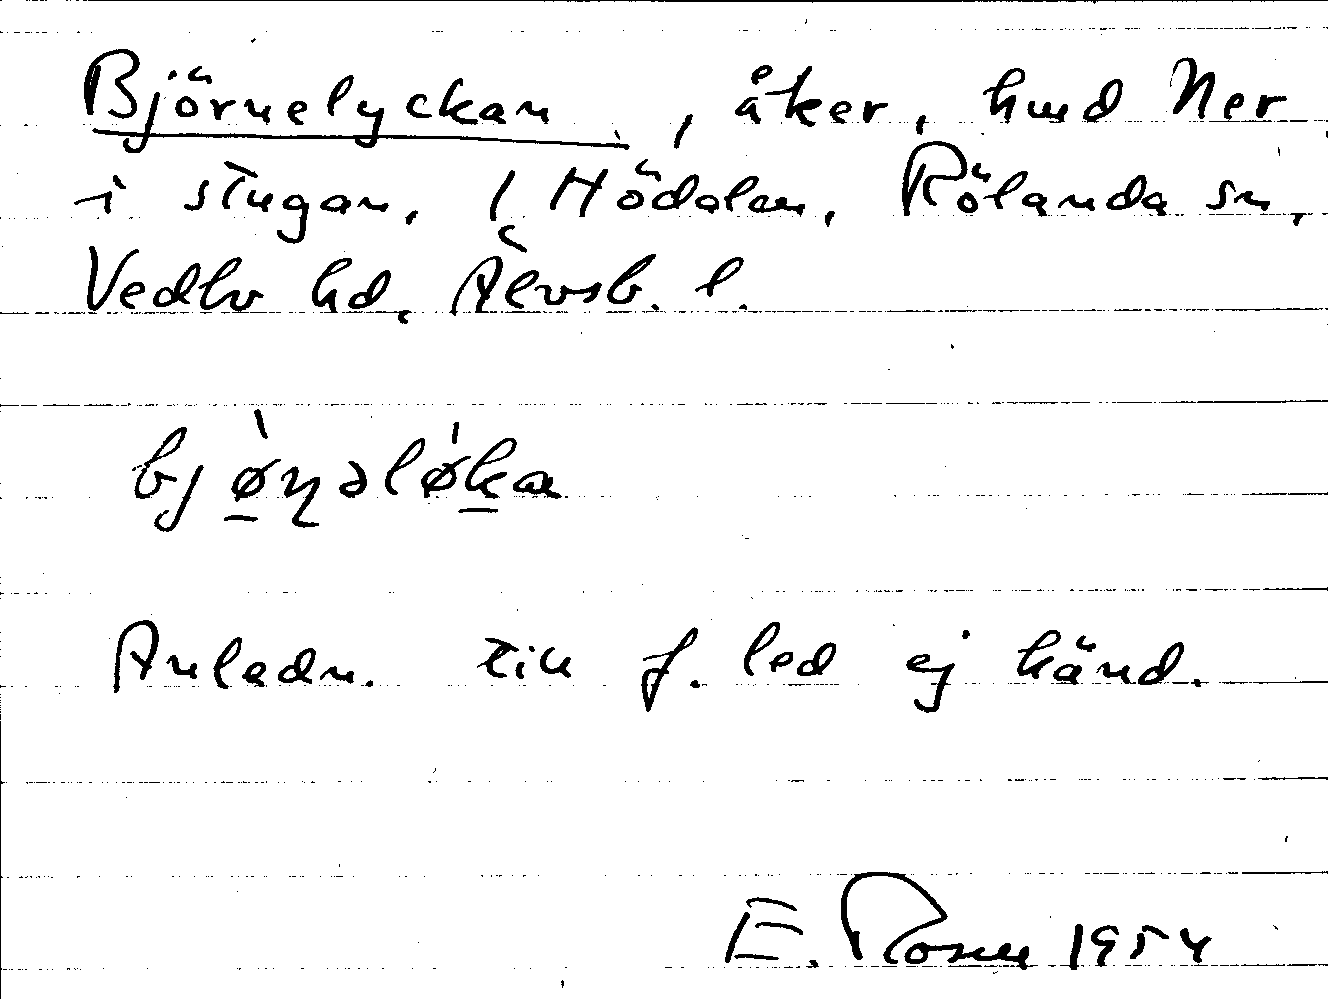 Björnelyckan, åker, hmd Ner
i stugan, 1 Hödalen, Rölanda sn,
Vedbo hd, Älvsb. l.
bjø̀ɳəlø̀ka
Anledn. till f. led ej känd.
E. Rosen 1954